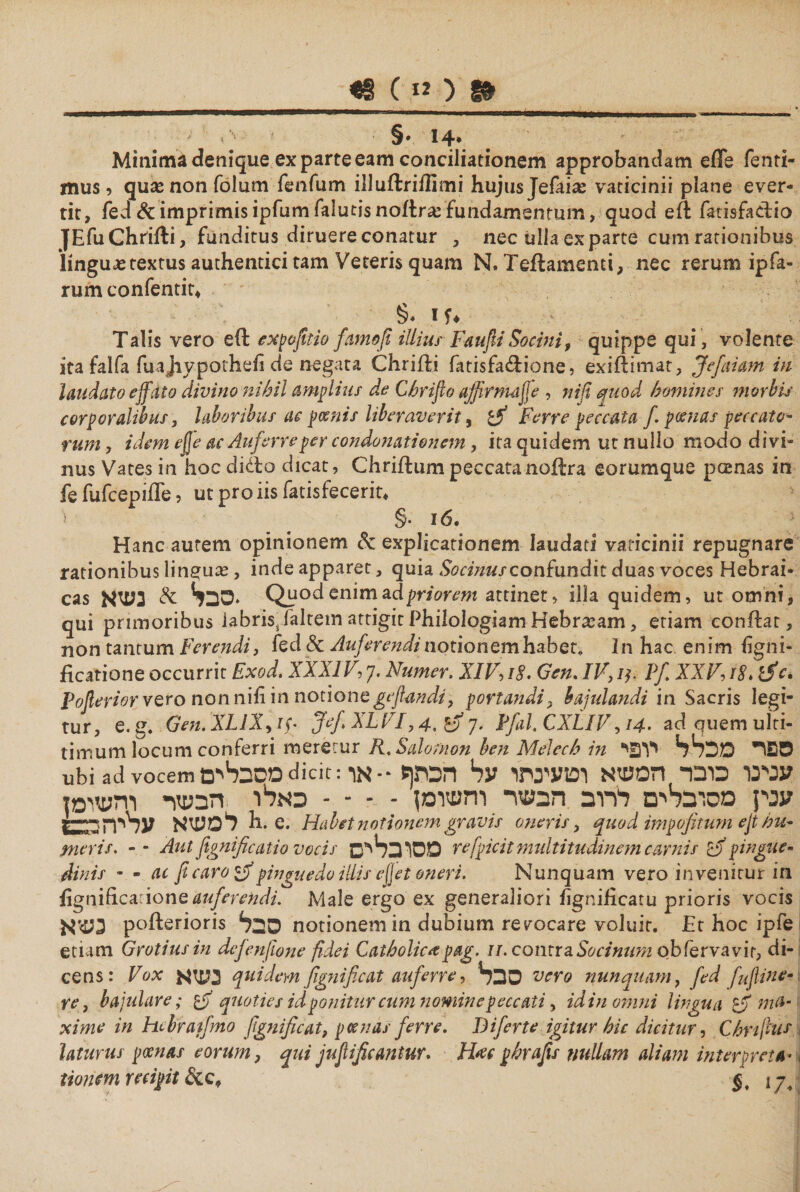 ( 12 )
§. 14.
Minima denique ex parte eam conciliationem approbandam eſſe ſenti-
mus, quæ non ſolum ſenſum illuſtriſſimi hujus Jeſaiæ vaticinii plane ever-
tit, ſed & imprimis ipſum ſalutis noſtræ fundamentum, quod eſt ſatisfactio
JEſu Chriſti, funditus diruere conatur , nec ulla ex parte cum rationibus
linguæ textus authentici tam Veteris quam N. Teſtamenti, nec rerum ipſa-
rum conſentit.
§. 15.
Talis vero eſt expoſitio famoſi illius Fauſti Socini, quippe qui, volente
ita falſa ſua hypotheſi de negata Chriſti ſatisfactione, exiſtimat, Jeſaiam in
laudato effato divino nihil amplius de Chriſto affirmaſſe , niſi quod homines morbis
corporalibus, laboribus ac pœnis liberaverit, & Ferre peccata ſ. pœnas peccato-
rum, idem eſſe ac Auferre per condonationem, ita quidem ut nullo modo divi-
nus Vates in hoc dicto dicat, Chriſtum peccata noſtra eorumque pœnas in
ſe ſuſcepiſſe, ut pro iis ſatisfecerit.
§. 16.
Hanc autem opinionem & explicationem laudati vaticinii repugnare
rationibus linguæ, inde apparet, quia Socinus confundit duas voces Hebrai-
cas נשא & סבל. Quod enim ad priorem attinet, illa quidem, ut omni,
qui primoribus labris, ſaltem attigit Philologiam Hebræam, etiam conſtat,
non tantum Ferendi, ſed & Auferendi notionem habet. In hac enim ſigni-
ficatione occurrit Exod. XXXIV, 7. Numer. XIV, 18. Gen. IV, 13. Pſ. XXV, 18. &c.
Poſterior vero non niſi in notione geſtandi, portandi, bajulandi in Sacris legi-
tur, e. g. Gen. XLIX, 15. Jeſ. XLVI, 4. & 7. Pſal. CXLIV, 14. ad quem ulti-
timum locum conferri meretur R. Salomon ben Melech in ספר מכלל יופי
ubi ad vocem מסבלים dicit: או ‐‐ ענינו כובד המשא וטעינתו על הכתף
ענין מסובלים לרוב הבשר והשומן - - - - כאלו הבשר והשומן
למשא עליהם h. e. Habet notionem gravis oneris, quod impoſitum eſt hu-
meris. - - Aut ſignificatio vocis מסובלים reſpicit multitudinem carnis & pingue-
dinis - - ac ſi caro & pinguedo illis eſſet oneri. Nunquam vero invenitur in
ſignificatione auferendi. Male ergo ex generaliori ſignificatu prioris vocis
נשא poſterioris סבל notionem in dubium revocare voluit. Et hoc ipſe
etiam Grotius in defenſione fidei Catholicæ pag. 11. contra Socinum obſervavit, di-
cens: Vox נשא quidem ſignificat auferre, סבל vero nunquam, ſed ſuſtine-
re, bajulare; & quoties id ponitur cum nomine peccati, id in omni lingua & ma-
xime in Hebraiſmo ſignificat, pœnas ferre. Diſerte igitur hic dicitur, Chriſtus
laturus pœnas eorum, qui juſtificantur. Hæc phraſis nullam aliam interpreta-
tionem recipit &c.
§. 17.